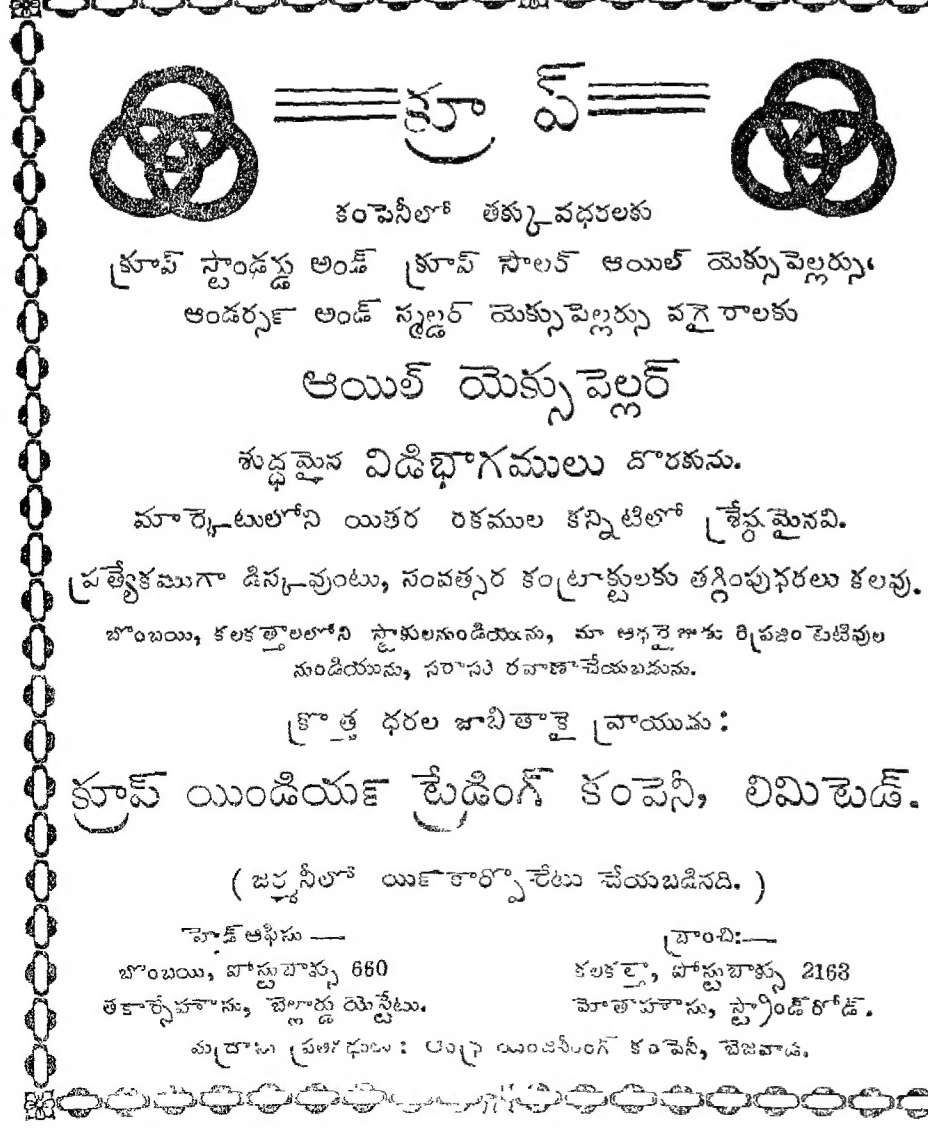 క్రూప్
కంపెనీలో తక్కువధరలకు
క్రూప్ స్టాండర్డు అండ్ క్రూప్ సాలక్ ఆయిల్ యెక్సుపెల్లర్సు,
ఆండర్సన్ అండ్ స్మల్డర్ యెక్సుపెల్లర్సు వగైరాలకు
ఆయిల్ యెక్సుపెల్లర్
శుద్ధమైన విడిభాగములు దొరకును.
మార్కెటులోని యితర రకముల కన్నిటిలో శ్రేష్ఠమైనవి.
ప్రత్యేకముగా డిస్కవుంటు, సంవత్సర కంట్రాక్టులకు తగ్గింపుధరలు కలవు.
బొంబయి, కలకత్తాలలోని స్టాకులనుండియును, మా ఆథరైజుడు రిప్రజెంటెటివుల
నుండియును, సరాసరి రవాణాచేయబడును.
క్రొత్త ధరల జాబితాకై వ్రాయుడు :
క్రూప్ యిండియన్ ట్రేడింగ్ కంపెనీ, లిమిటెడ్.
( జర్మనీలో యిన్‌కార్పొరేటు చేయబడినది. )
హెడ్ఆఫీసు —
బొంబయి, పోస్టుబాక్సు 660
తకార్సేహౌసు, బెల్లార్డు యెస్టేటు.
బ్రాంచి:—
కలకత్తా, పోస్టుబాక్సు 2163
మోతాహౌసు, స్ట్రాండ్‌రోడ్.
మద్రాసు ప్రతినిధులు : ఆంధ్ర యింజనీరింగ్ కంపెనీ, బెజవాడ.